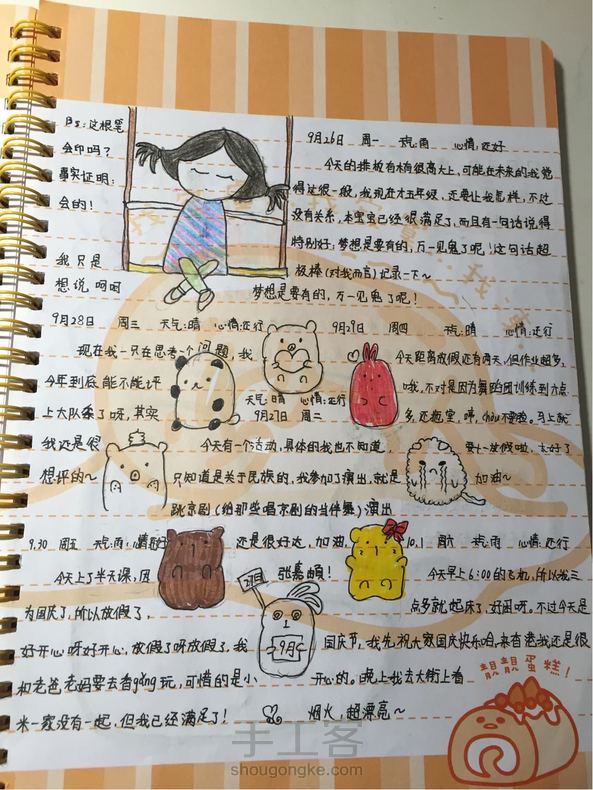 Ps:这根笔
会印吗?
事实证明:
会的!
我只是
想说,呵呵
9月26日 周一 天气:雨 心情:还好
今天的排放有木有很高大上,可能在未来的我觉
得这很一般,我现在才五年级,还要让我怎样,不过
没有关系,本宝宝已经很满足了,而且有一句话说得
特别好:梦想是要有的,万一见鬼了呢!这句话超
极棒(对我而言)纪录一下~
梦想是要有的,万一见鬼了呢!
9月28日 周三 天气:晴 心情:还行
现在我一只在思考一个问题,我
今年到底能不能评
上大队委了呀,其实
我还是很
想评的~
9月29日 周四 天气:晴 心情:还行
今天距离放假还有两天,但作业超多,
哦,不对是因为舞蹈团训练到六点
多,还拖堂,哼,chou不要脸。马上就
要十一放假啦,太好了
加油~
天气:晴 心情:还行
9月27日 周二
今天有一个活动,具体的我也不知道,
只知道是关于民族的,我参加了演出,就是
跳京剧(给那些唱京剧的当伴舞)演出
还是很好达,加油,
张嘉頔!
9.30 周五 天气:雨 心情:还行
今天上了半天课,因
为国庆了,所以放假了,
好开心呀好开心,放假了呀放假了,我
和老爸老妈要去香gǎng玩,可惜的是小
米一家没有一起,但我已经满足了!
27日
9月
10.1 周六 天气:雨 心情:还行
今天早上6:00的飞机,所以我三
点多就起床了,好困呀。不过今天是
国庆节,我先祝大家国庆快乐哈,来香港我还是很
开心的。晚上我去大街上看
烟火,超漂亮~
靓靓蛋糕!
手工客
shougongke.com